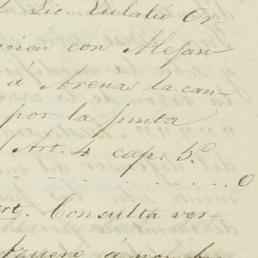 Lic. Eulalio Or-
ccion con Alejan
á Arenas la can-
por la junta
(Art. 4 cap. 5.º
0
rt. Consulta ver-